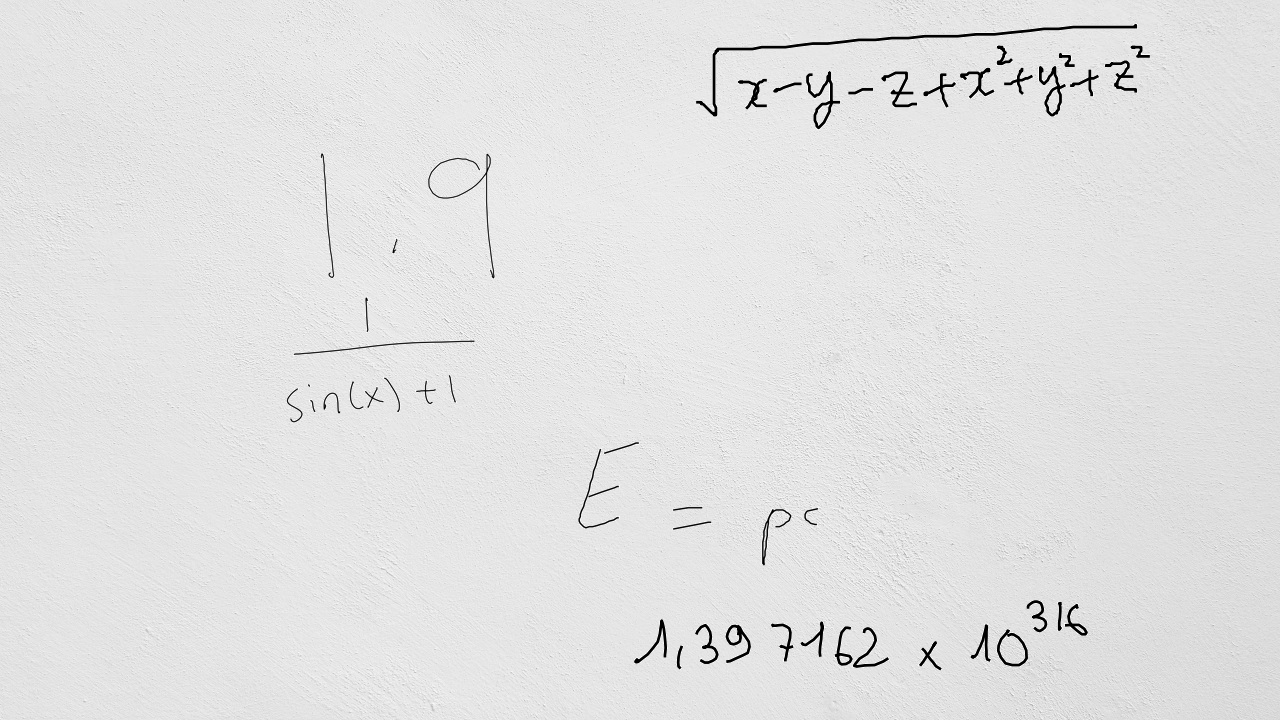 √(x-y-z+x²+y²+z²)
1.9
1/(sin(x)+1)
E = pc
1,397162 x 10³¹⁶